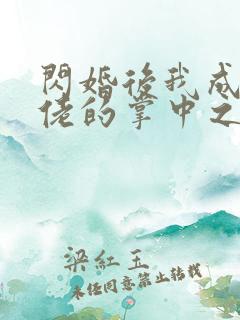 閃婚後我成
佬的掌中之
梁紅玉
未经同意禁止转载